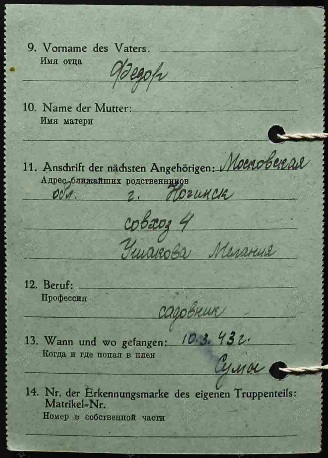 9. Vorname des Vaters:
Имя отца
Федор
10. Name der Mutter:
Имя матери
11. Anschrift der nächsten Angehörigen: Московская
Адрес ближайших родственников
обл. г. Ногинск
совхоз 4
Ушакова Мелания
12. Beruf:
Профессия
садовник
13. Wann und wo gefangen: 10.3.43 г.
Когда и где попал в плен
Сумы
14. Nr. der Erkennungsmarke des eigenen Truppenteils:
Matrikel-Nr.
Номер в собственной части